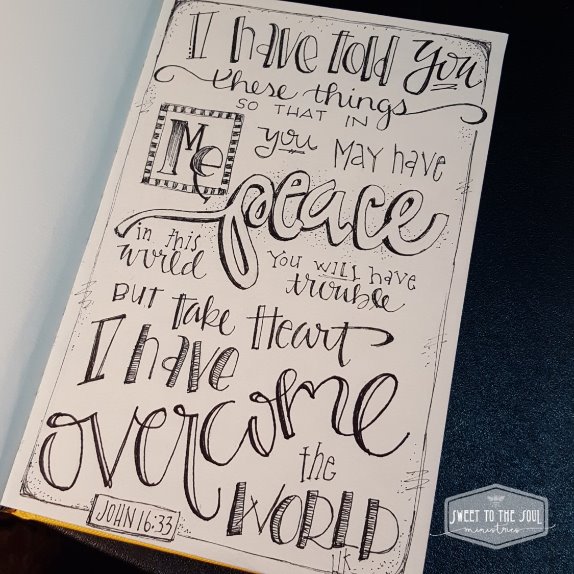 I have told you
these things
SO THAT IN
Me you MAY have
peace
in this
world You will have
trouble
BUT take Heart
I have
overcome
the
WORLD
JOHN 16:33
SWEET TO THE SOUL
ministries